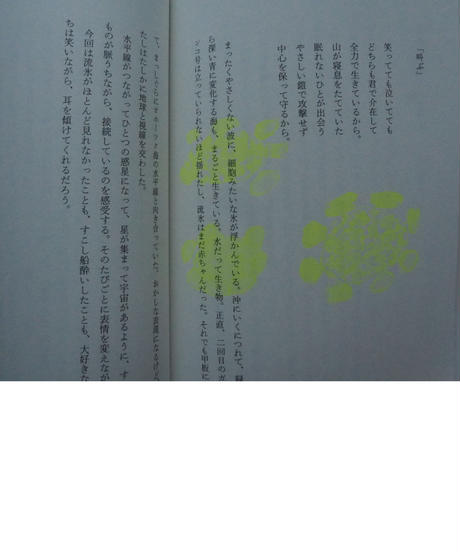 「叫ぶ」
笑ってても泣いてても
どちらも君で介在して
全力で生きているから。
山が寝息をたてていた
眠れないひとが出会う
やさしい鎧で攻撃せず
中心を保って守るから。
まったくやさしくない波に、細胞みたいな氷が浮かんでいる。沖にいくにつれて、緑
ら深い青に変化する海も、まるごと生きている。水だって生き物。正直、二回目のガ
ンコ号は立っていられないほど揺れたし、流氷はまだ赤ちゃんだった。それでも甲板に
て、まっしろにオホーツク海の水平線と向き合っていた。おかしな表現になるけど
たしはたしかに地球と視線を交わした。
水平線がつながってひとつの惑星になって、星が集まって宇宙があるように、す
ものが願うちながら、接続しているのを感受する。そのたびごとに表情を変えなが
今回は流氷がほとんど見れなかったことも、すこし船酔いしたことも、大好きな
ちは笑いながら、耳を傾けてくれるだろう。